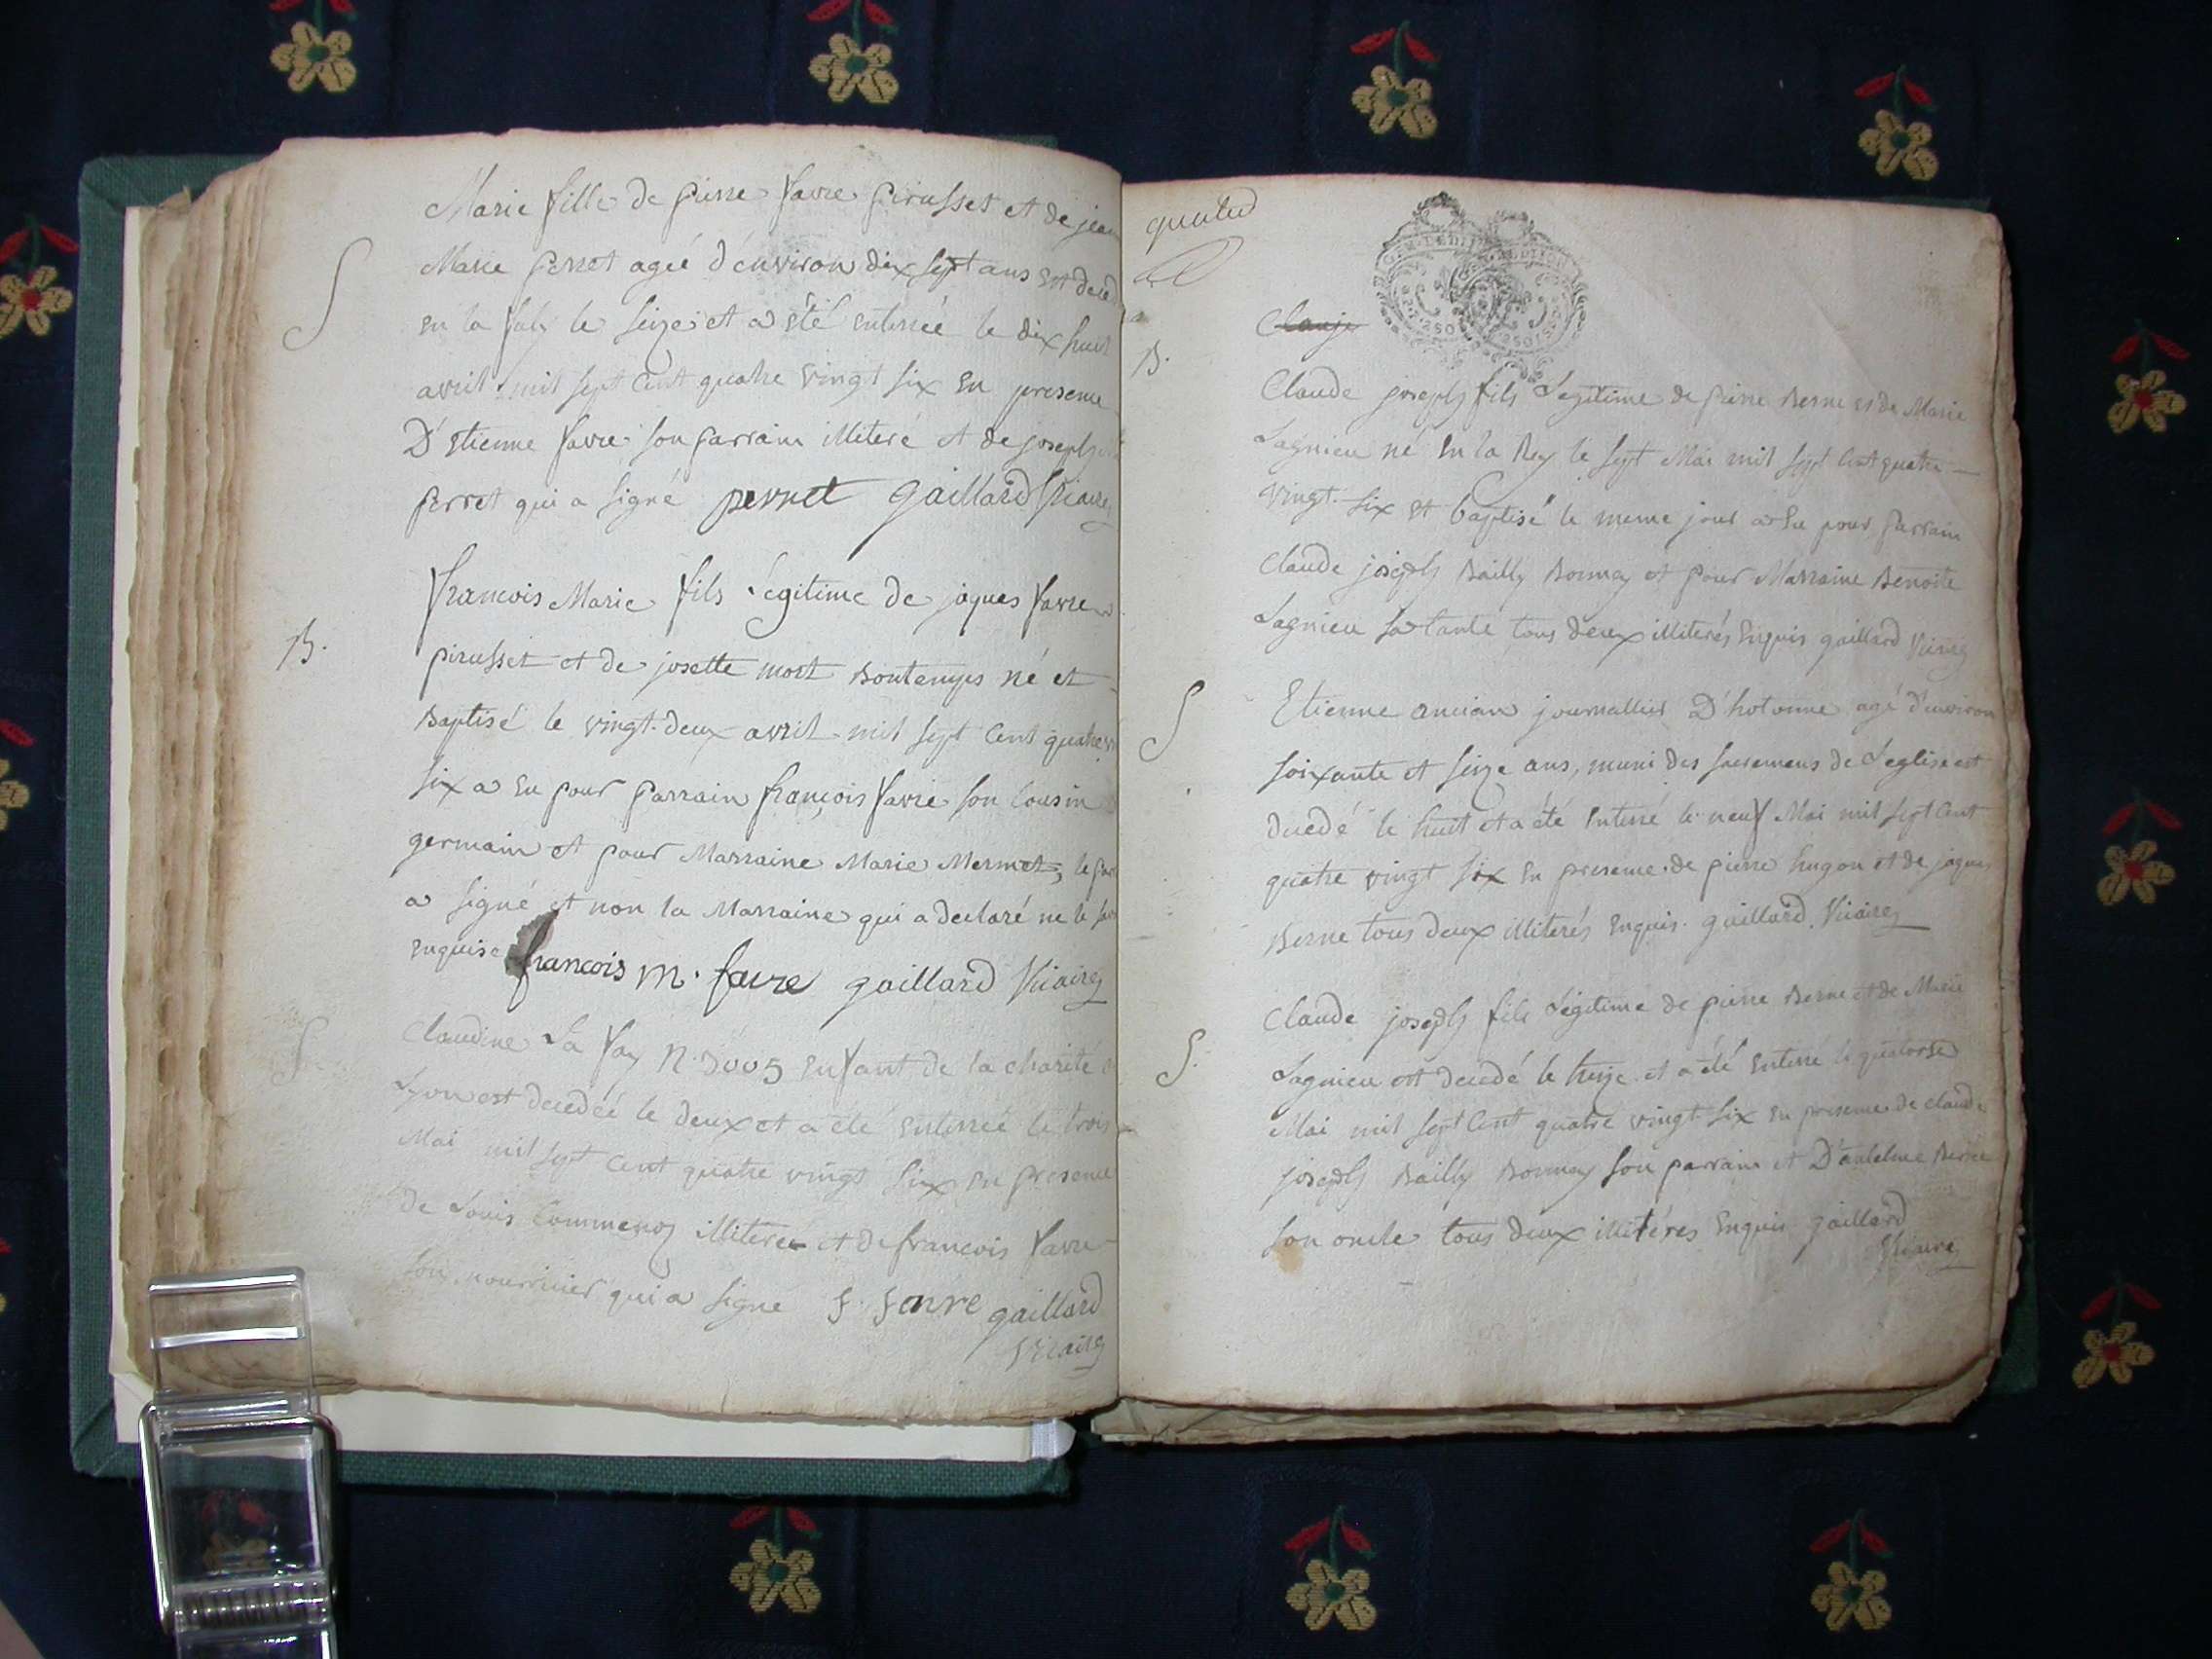 Marie fille de pierre favre pirasset et de jean
S
Marie perret agée d'environ dix sept ans est deced
en la faly le seize et a été enterrée le dix huit
avril mil sept cent quatre vingt six en presence
D'etienne favre son parrain illiteré et de joseph
perret qui a signé perret gaillard Vicaire
francois Marie fils légitime de jaques favre
B.
pirasset et de josette mort Bontemps né et
Baptisé le vingt-deux avril mil sept cent quatre vi
six a eu pour parrain françois favre son cousin
germain et pour Marraine Marie Mermet, le par
a signé et non la Marraine qui a declaré ne le sav
enquise francois m. favre gaillard Vicaire
S.
Claudine La fay N. 3005 enfant de la charité d
Lyon est decedée le deux et a été enterrée le trois
Mai mil sept cent quatre vingt six en presence
de Louis illiteré et de francois favre
son nourricier qui a signé f. favre gaillard
Vicaire
B.
Claude joseph fils Legitime de pierre Berne et de Marie
Lagnieu né en la Rey le sept Mai mil sept cent quatre
vingt-six et baptisé le meme jour a eu pour parrain
Claude joseph Bailly Bonnay et pour Marraine Benoite
Lagnieu sa tante tous deux illiterés enquis gaillard Vicaire
S
Etienne ancian journallier D'hotonne agé d'environ
soixante et seize ans, muni des sacremens de L'eglise est
decedé le huit et a été enterré le neuf Mai mil sept cent
quatre vingt six en presence de pierre hugon et de jaques
Berne tous deux illiterés enquis. gaillard Vicaire
Claude joseph fils Légitime de pierre Berne et de Marie
S.
Lagnieu est decedé le treize et a été enterré le quatorse
Mai mil sept cent quatre vingt-six en presence de claude
joseph Bailly Bonnay son parrain et D'antelme Berne
son oncle tous deux illitérés enquis gaillard
Vicaire